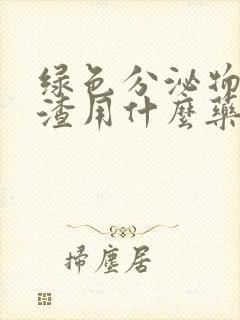 绿色分泌物
渣用什麼藥
掃塵居